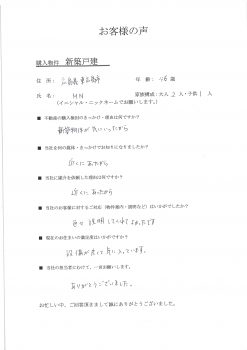 お客様の声
購入物件 新築戸建
住所: 広島県 東広島市 年齢: 46歳
氏名: HN 家族構成:大人2人・子供1人
(イニシャル・ニックネームでお願いします。)
■ 不動産の購入検討のきっかけ・理由は何ですか?
新築物件が気にいったから
■ 当社を何の媒体・きっかけでお知りになりましたか?
近くにあったから
■ 当社に仲介を依頼した理由は何ですか?
近くにあったから
■ 当社のお客様に対するご対応(物件案内・説明など)はいかがでしたか?
色々説明してくれてよかったです
■ 現在のお住まいの満足度はいかがですか?
設備が良くて気に入っています。
■ 当社の担当者にむけて、一言お願いします。
ありがとうございました。
お忙しい中、ご回答頂きまして誠にありがとうございました。